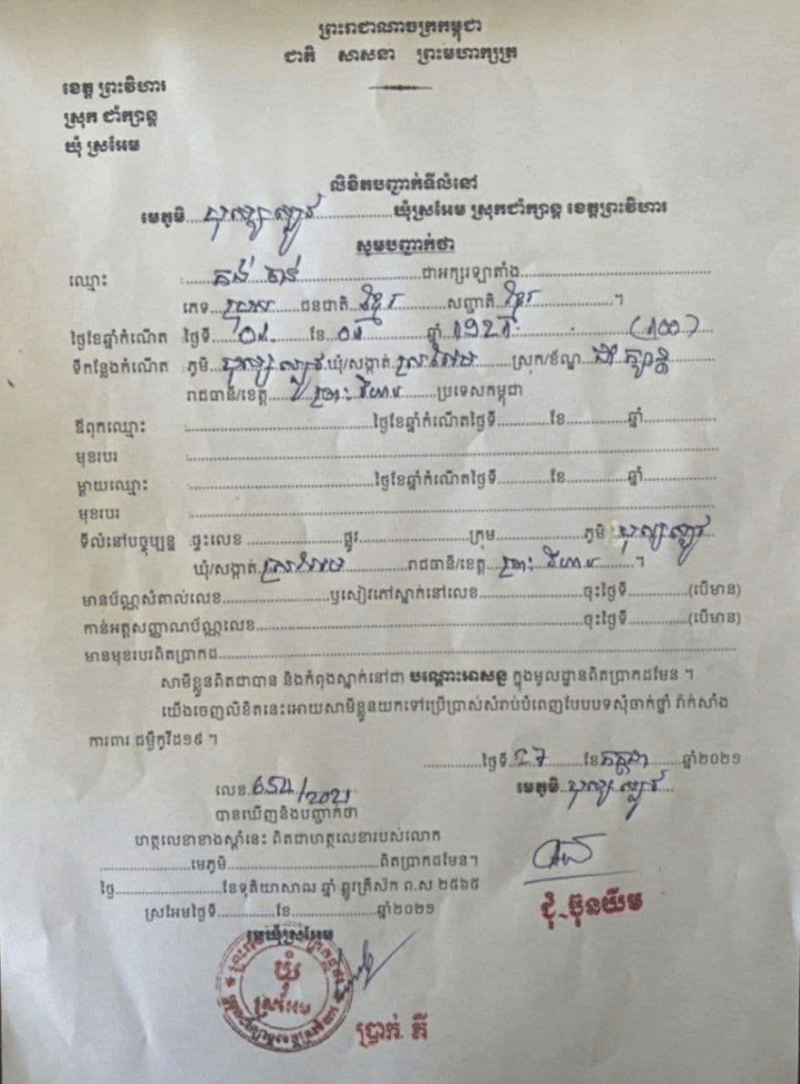 ព្រះរាជាណាចក្រកម្ពុជា
ជាតិ សាសនា ព្រះមហាក្សត្រ
ខេត្ត ព្រះវិហារ
ស្រុក ជាំក្សាន្ត
ឃុំ ស្រអែម
លិខិតបញ្ជាក់ទីលំនៅ
មេភូមិ ឃុំស្រអែម ស្រុកជាំក្សាន្ត ខេត្តព្រះវិហារ
សូមបញ្ជាក់ថា
ឈ្មោះ : ជាអក្សរឡាតាំង
ភេទ ជនជាតិ ខ្មែរ សញ្ជាតិ ខ្មែរ ។
ថ្ងៃខែឆ្នាំកំណើត : ថ្ងៃទី ខែ ឆ្នាំ (១០០)
ទីកន្លែងកំណើត : ភូមិ ឃុំ/សង្កាត់ ស្រអែម ស្រុក/ខ័ណ្ឌ ជាំក្សាន្ត
រាជធានី/ខេត្ត ព្រះវិហារ ប្រទេសកម្ពុជា
ឪពុកឈ្មោះ : ថ្ងៃខែឆ្នាំកំណើតថ្ងៃទី ខែ ឆ្នាំ
មុខរបរ :
ម្តាយឈ្មោះ : ថ្ងៃខែឆ្នាំកំណើតថ្ងៃទី ខែ ឆ្នាំ
មុខរបរ :
ទីលំនៅបច្ចុប្បន្ន : ផ្ទះលេខ ផ្លូវ ក្រុម ភូមិ
ឃុំ/សង្កាត់ ស្រអែម រាជធានី/ខេត្ត ព្រះវិហារ ។
មានប័ណ្ណសំគាល់លេខ ឫសៀវភៅស្នាក់នៅលេខ ចុះថ្ងៃទី (បើមាន)
កាន់អត្តសញ្ញាណប័ណ្ណលេខ ចុះថ្ងៃទី (បើមាន)
មានមុខរបរពិតប្រាកដ
សាមីខ្លួនពិតជាបាន និងកំពុងស្នាក់នៅជា បណ្តោះអាសន្ន ក្នុងមូលដ្ឋានពិតប្រាកដមែន ។
យើងចេញលិខិតនេះអោយសាមីខ្លួនយកទៅប្រើប្រាស់សំរាប់បំពេញបែបបទសុំចាក់ថ្នាំ វ៉ាក់សាំង
ការពារ ជម្ងឺកូវីដ១៩ ។
ថ្ងៃទី ២៧ ខែ កក្កដា ឆ្នាំ២០២១
លេខ 654/2021
មេភូមិ
បានឃើញនិងបញ្ជាក់ថា
ហត្ថលេខាខាងស្តាំនេះ ពិតជាហត្ថលេខារបស់លោក
មេភូមិ ពិតប្រាកដមែន។
ថ្ងៃ ខែទុតិយាសាឍ ឆ្នាំ ឆ្លូវត្រីស័ក ព.ស ២៥៦៥
ស្រអែមថ្ងៃទី ខែ ឆ្នាំ២០២១
ជុំ ប៊ុនយ៉ម
មេឃុំស្រអែម
ឃុំ
ស្រអែម
ប្រាក់ គី